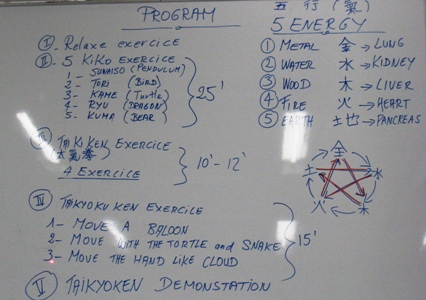 PROGRAM
I - Relaxe exercice
II - 5 KIKO EXERCICE
1 - SUWAISO (PENDULUM)
2 - TORI (BIRD)
3 - KAME (Turtle)
4 - RYU (DRAGON)
5 - KUMA (BEAR)
25'
III - TAIKIKEN EXERCICE
(太氣拳)
4 EXERCICE
10' - 12'
IV TAIKYOKUKEN EXERCICE
1 - MOVE A BALOON
2 - MOVE WITH THE TORTLE and SNAKE
3 - MOVE THE HAND LIKE CLOUD
15'
V TAIKYOKEN DEMONSTATION
五 行 (氣)
5 ENERGY
1 METAL 金 → LUNG
2 WATER 水 → KIDNEY
3 WOOD 木 → LIVER
4 FIRE 火 → HEART
5 EARTH 土也 → PANCREAS
金
土 水
火 木